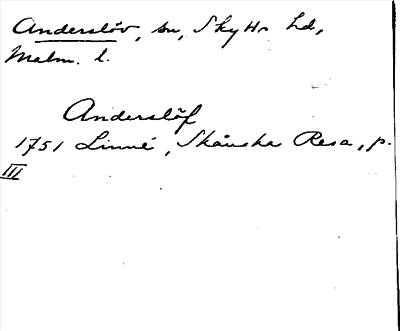 Anderslöv, sn, Skytts hd,
Malm. l.
Anderslöf
1751 Linné, Skånska Resa, p.
III